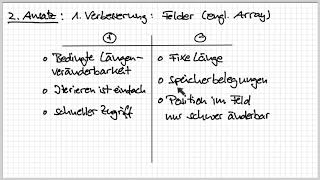 2. Ansatz: 1. Verbesserung: Felder (engl. Array)
Bedingte Längen-
veränderbarkeit
Iterieren ist einfach
schneller Zugriff
Fixe Länge
Speicherbelegungen
Position im Feld
nur schwer änderbar